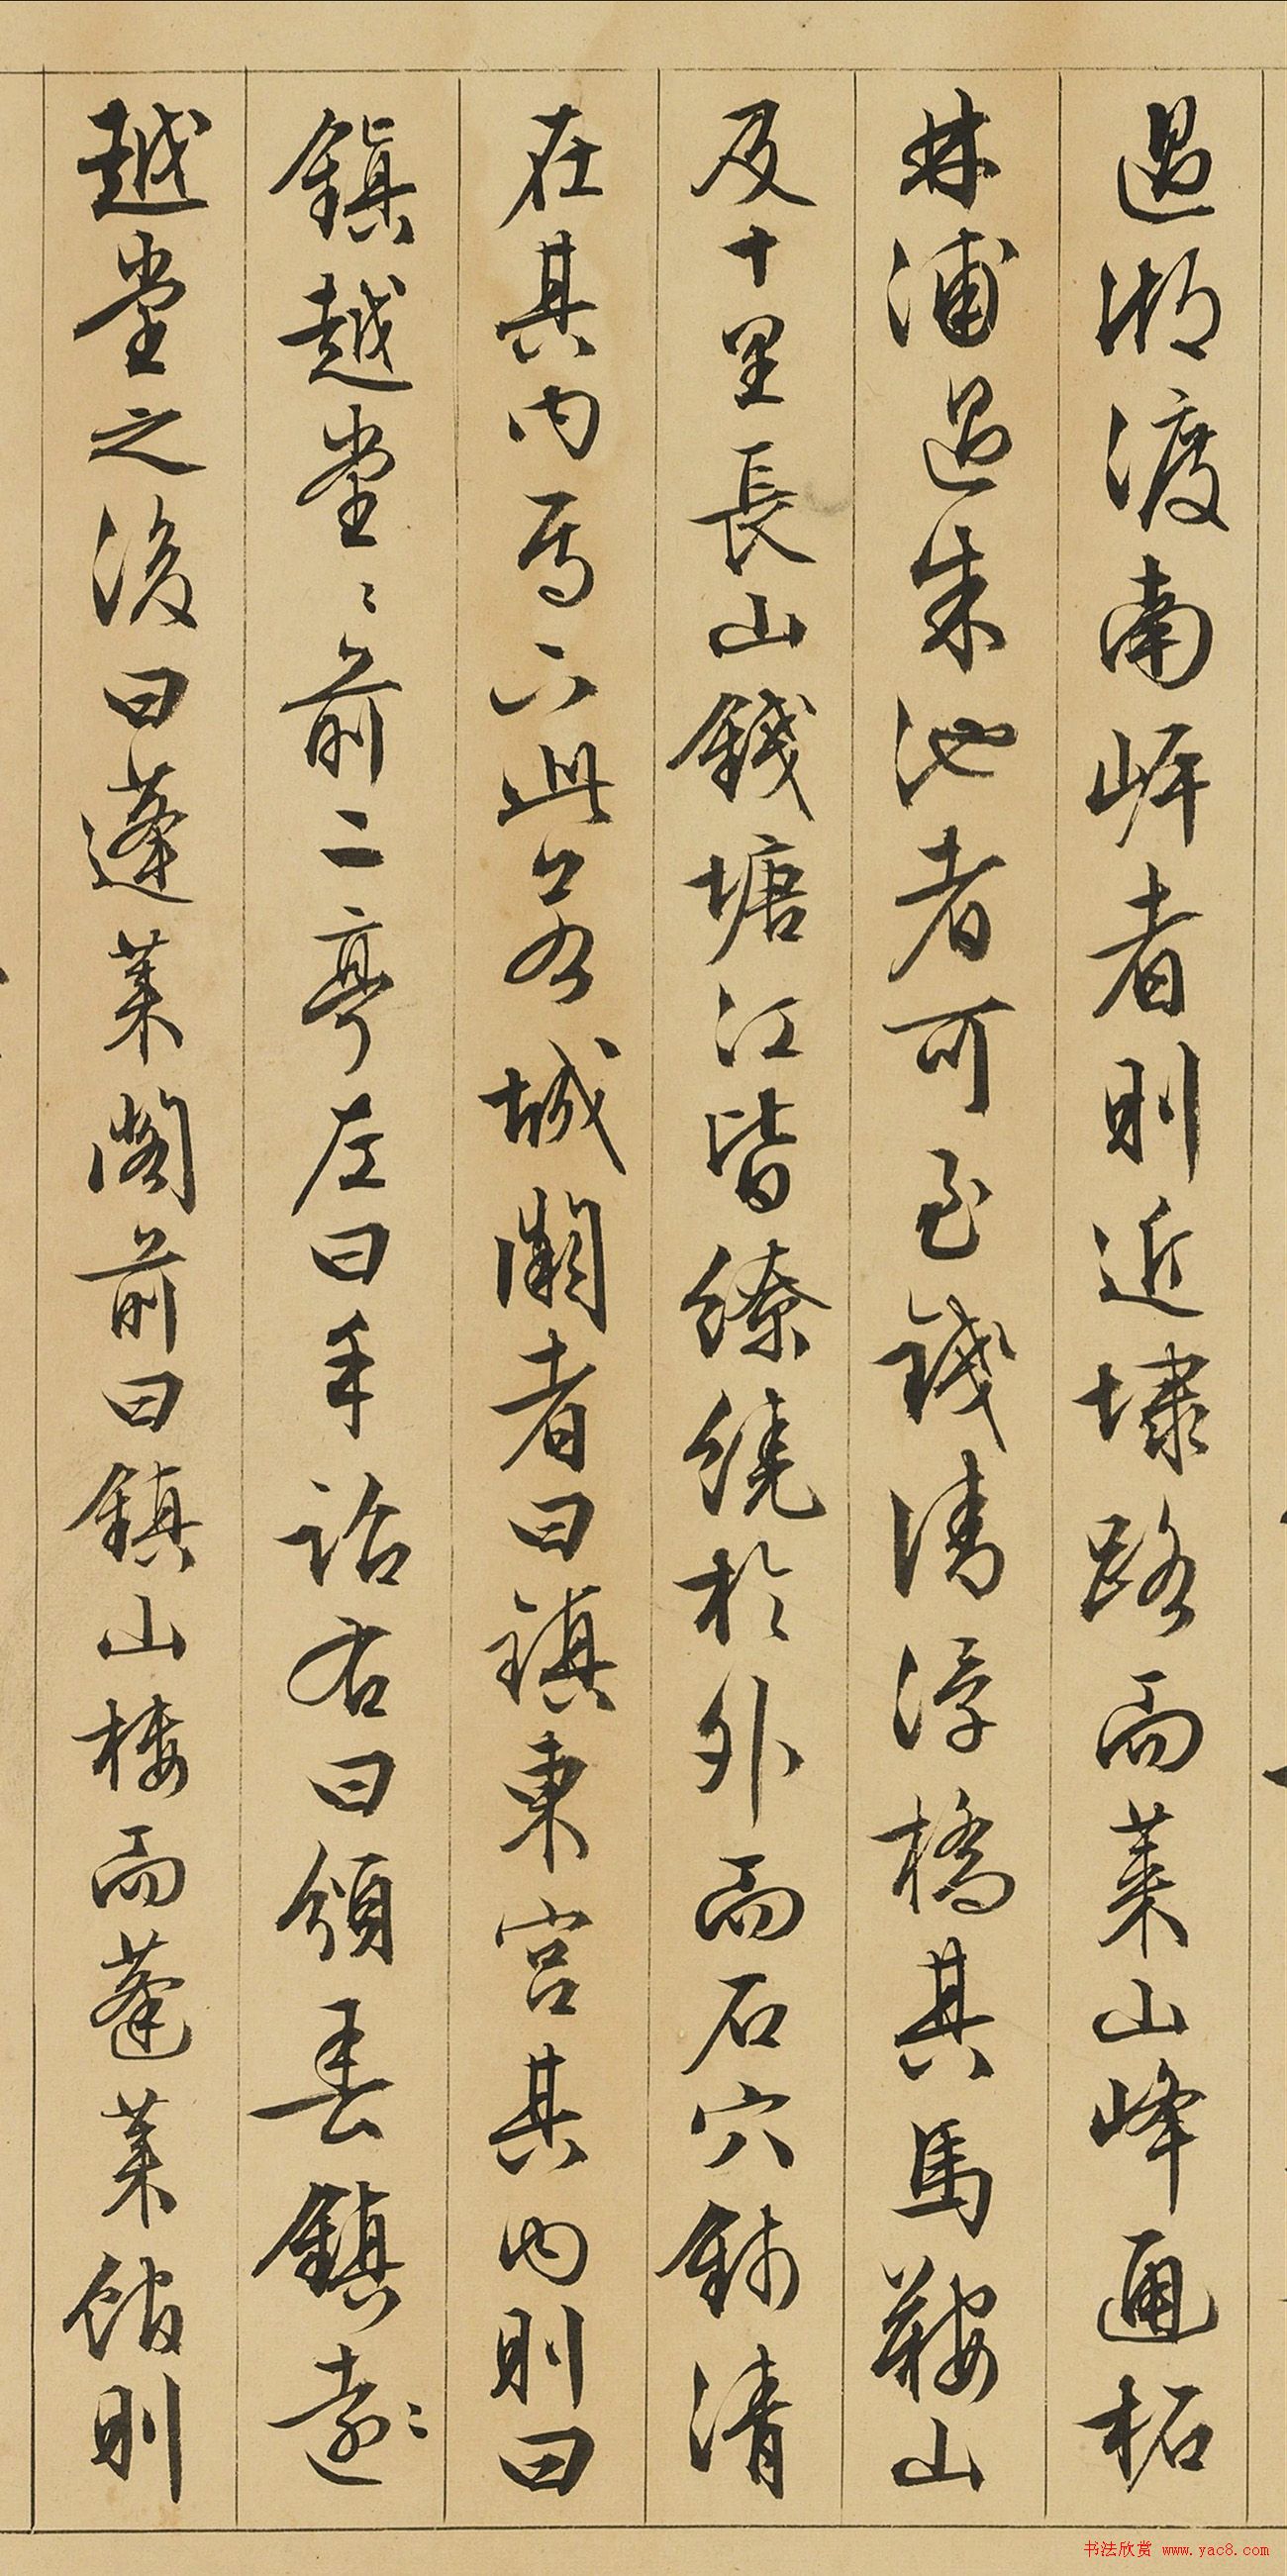 過湖渡南岸者則近埭路而萊山峰通柘
林浦過朱池者可至錢清浮橋其馬鞍山
及十里長山錢塘江皆繚繞於外而石穴錢清
在其內焉此城闕者曰鎮東宮其內則曰
鎮越堂〻前二亭左曰手詔右曰頒春鎮遠〻
越堂之後曰蓬萊閣前曰鎮山樓而蓬萊館則
书法欣赏 www.yac8.com